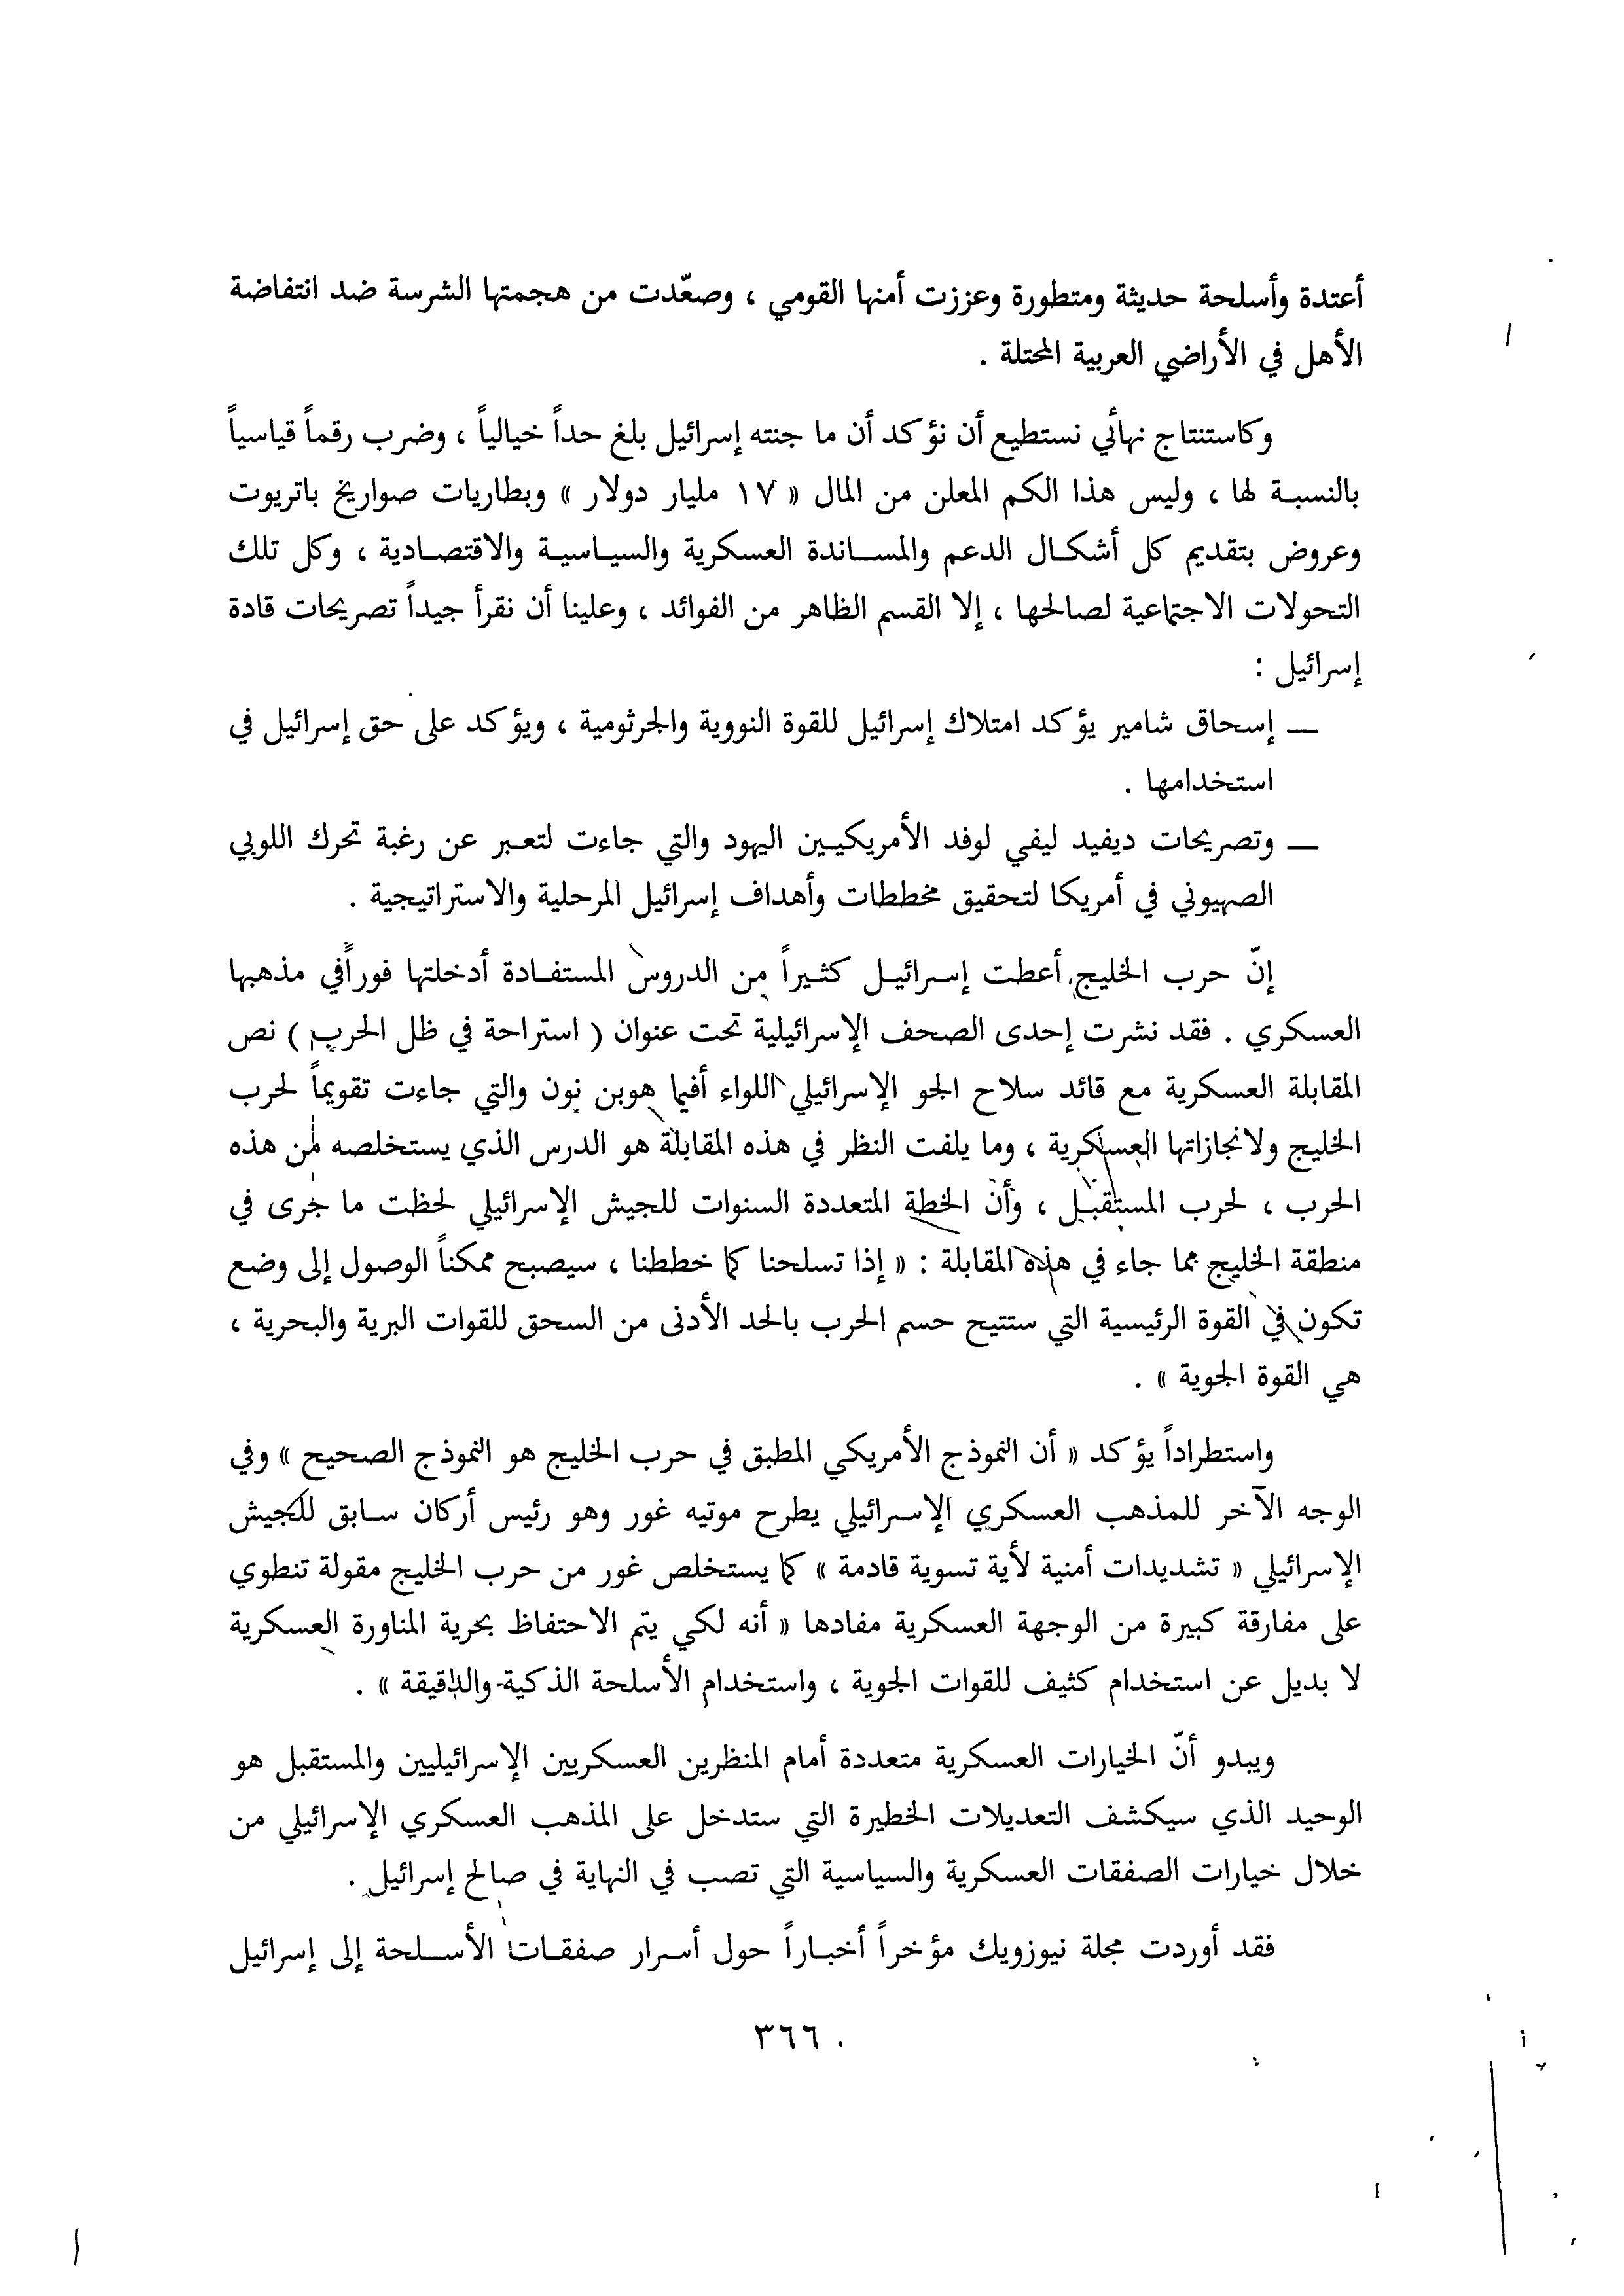 أعتدة وأسلحة حديثة ومتطورة وعززت أمنها القومي ، وصعّدت من هجمتها الشرسة ضد انتفاضة
الأهل في الأراضي العربية المحتلة .
وكاستنتاج نهائي نستطيع أن نؤكد أن ما جنته إسرائيل بلغ حداً خيالياً ، وضرب رقماً قياسياً
بالنسبة لها ، وليس هذا الكم المعلن من المال « ١٧ مليار دولار » وبطاريات صواريخ باتريوت
وعروض بتقديم كل أشكال الدعم والمساندة العسكرية والسياسية والاقتصادية ، وكل تلك
التحولات الاجتماعية لصالحها ، إلا القسم الظاهر من الفوائد ، وعلينا أن نقرأ جيداً تصريحات قادة
إسرائيل :
— إسحاق شامير يؤكد امتلاك إسرائيل للقوة النووية والجرثومية ، ويؤكد على حق إسرائيل في
استخدامها .
— وتصريحات ديفيد ليفي لوفد الأمريكيين اليهود والتي جاءت لتعبر عن رغبة تحرك اللوبي
الصهيوني في أمريكا لتحقيق مخططات وأهداف إسرائيل المرحلية والاستراتيجية .
إنّ حرب الخليج أعطت إسرائيل كثيراً من الدروس المستفادة أدخلتها فوراً في مذهبها
العسكري . فقد نشرت إحدى الصحف الإسرائيلية تحت عنوان ( استراحة في ظل الحرب ) نص
المقابلة العسكرية مع قائد سلاح الجو الإسرائيلي اللواء أفيا هوبن نون والتي جاءت تقويماً لحرب
الخليج ولانجازاتها العسكرية ، وما يلفت النظر في هذه المقابلة هو الدرس الذي يستخلصه من هذه
الحرب ، لحرب المستقبل ، وأن الخطة المتعددة السنوات للجيش الإسرائيلي لحظت ما جرى في
منطقة الخليج مما جاء في هذه المقابلة : « إذا تسلحنا كما خططنا ، سيصبح ممكناً الوصول إلى وضع
تكون في القوة الرئيسية التي ستتيح حسم الحرب بالحد الأدنى من السحق للقوات البرية والبحرية ،
هي القوة الجوية » .
واستطراداً يؤكد « أن النموذج الأمريكي المطبق في حرب الخليج هو النموذج الصحيح » وفي
الوجه الآخر للمذهب العسكري الإسرائيلي يطرح موتيه غور وهو رئيس أركان سابق للجيش
الإسرائيلي « تشديدات أمنية لأية تسوية قادمة » كما يستخلص غور من حرب الخليج مقولة تنطوي
على مفارقة كبيرة من الوجهة العسكرية مفادها « أنه لكي يتم الاحتفاظ بحرية المناورة العسكرية
لا بديل عن استخدام كثيف للقوات الجوية ، واستخدام الأسلحة الذكية والدقيقة » .
ويبدو أنّ الخيارات العسكرية متعددة أمام المنظرين العسكريين الإسرائيليين والمستقبل هو
الوحيد الذي سيكشف التعديلات الخطيرة التي ستدخل على المذهب العسكري الإسرائيلي من
خلال خيارات الصفقات العسكرية والسياسية التي تصب في النهاية في صالح إسرائيل .
فقد أوردت مجلة نيوزويك مؤخراً أخباراً حول أسرار صفقات الأسلحة إلى إسرائيل
٣٦٦